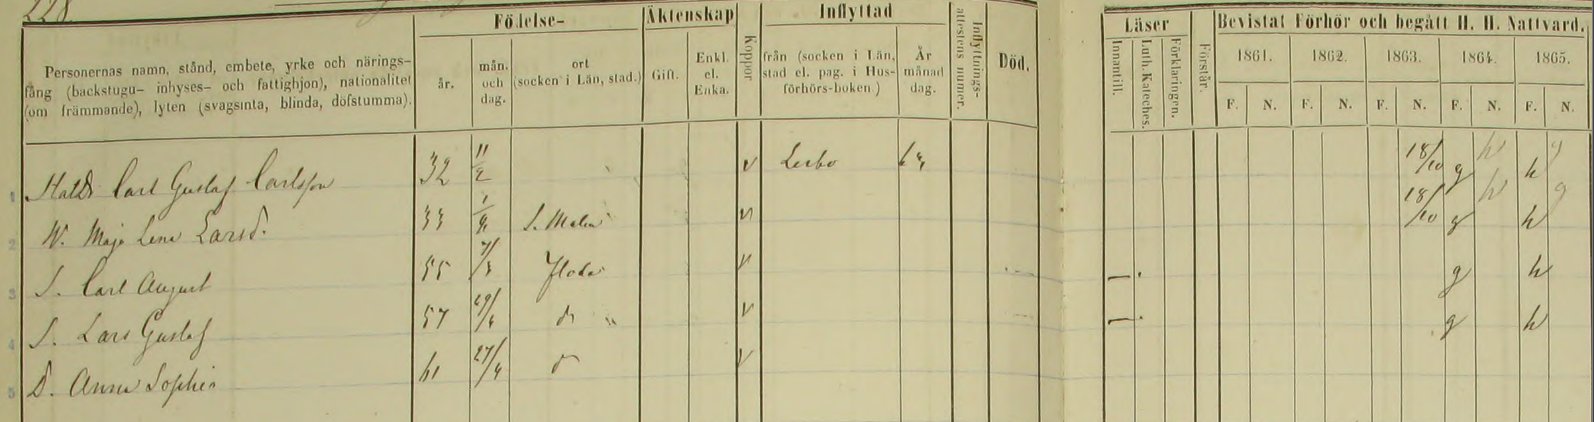 228.
Födelse- Äktenskap Inflyttad Läser Bevistat Förhör och begått H. H. Nattvard.
Personernas namn, stånd, embete, yrke och närings-
fång (backstugu- inhyses- och fattighjon), nationalitet
(om främmande), lyten (svagsinta, blinda, döfstumma).
år. mån. och dag. ort (socken i Län, stad.) Gift. Enkl. el. Enka. Koppor. från (socken i Län, stad el. pag. i Husförhörs-boken.) År månad dag. Inflyttnings-attestens numer. Död. Innantill. Luth. Kateches. Förklaringen. Förstår. 1861. 1862. 1863. 1864. 1865.
F. N. F. N. F. N. F. N. F. N.
1 Carl Gustaf Carlsson 32 11/2 v Lerbo 18/10 g h
2 Maja Lena Larsd. 33 v 18/10 g h
3 S. Carl August 55 Floda v g h
4 S. Lars Gustaf 57 v g h
5 D. Anna Sophia 61 27/4 v